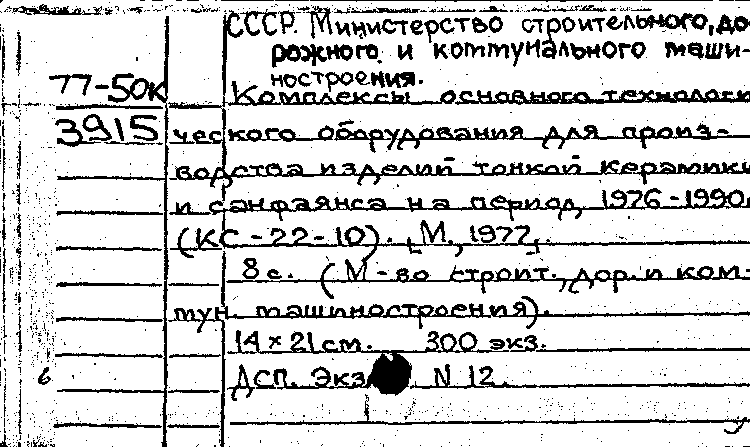 СССР. Министерство строительного, до-
рожного и коммунального маши-
ностроения.
77-50к
Комплексы основного технологи
3915 ческого оборудования для произ-
водства изделий тонкой керамики
и санфаянса на период 1976-1990.
(КС-22-10). [М., 1977].
8 с. (М-во строит., дор. и ком-
мун. машиностроения).
14×21 см. 300 экз.
6 ДСП. Экз. N 12.